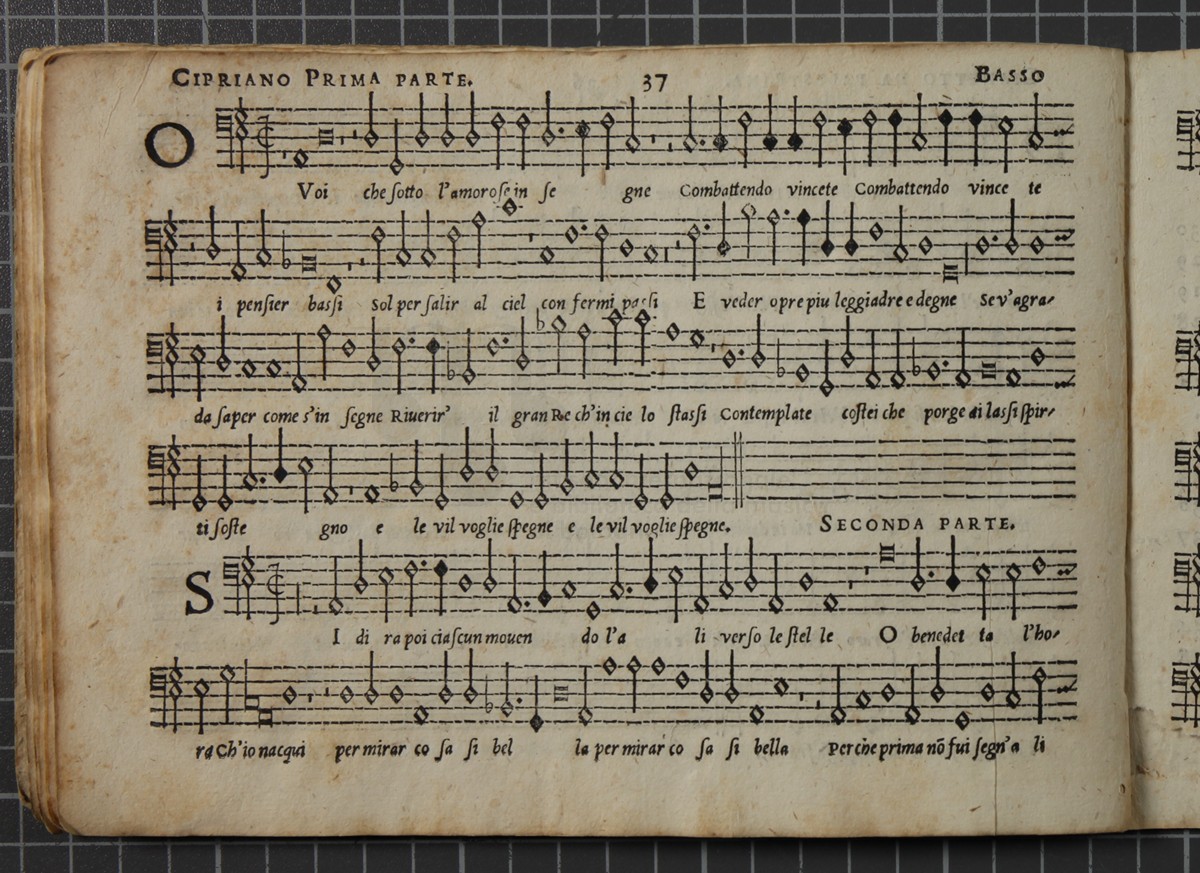 CIPRIANO PRIMA PARTE. 37 BASSO
O
Voi che ſotto l'amoroſe in ſe gne Combattendo vincete Combattendo vince te
i penſier baſſi ſol per ſalir al ciel con fermi paſſi E veder opre piu leggiadre e degne Se v'agra-
da ſaper come s'in ſegne Riuerir' il gran Re ch'in cie lo ſtaſſi Contemplate coſtei che porge ai laſſi ſpir-
ti ſoſte gno e le vil voglie ſpegne e le vil voglie ſpegne. SECONDA PARTE.
S
I di ra poi ciaſcun mouen do l'a li verſo le ſtel le O benedet ta l'ho-
ra Ch'io nacqui per mirar co ſa ſi bel la per mirar co ſa ſi bella Perche prima nõ fui ſegn'a li